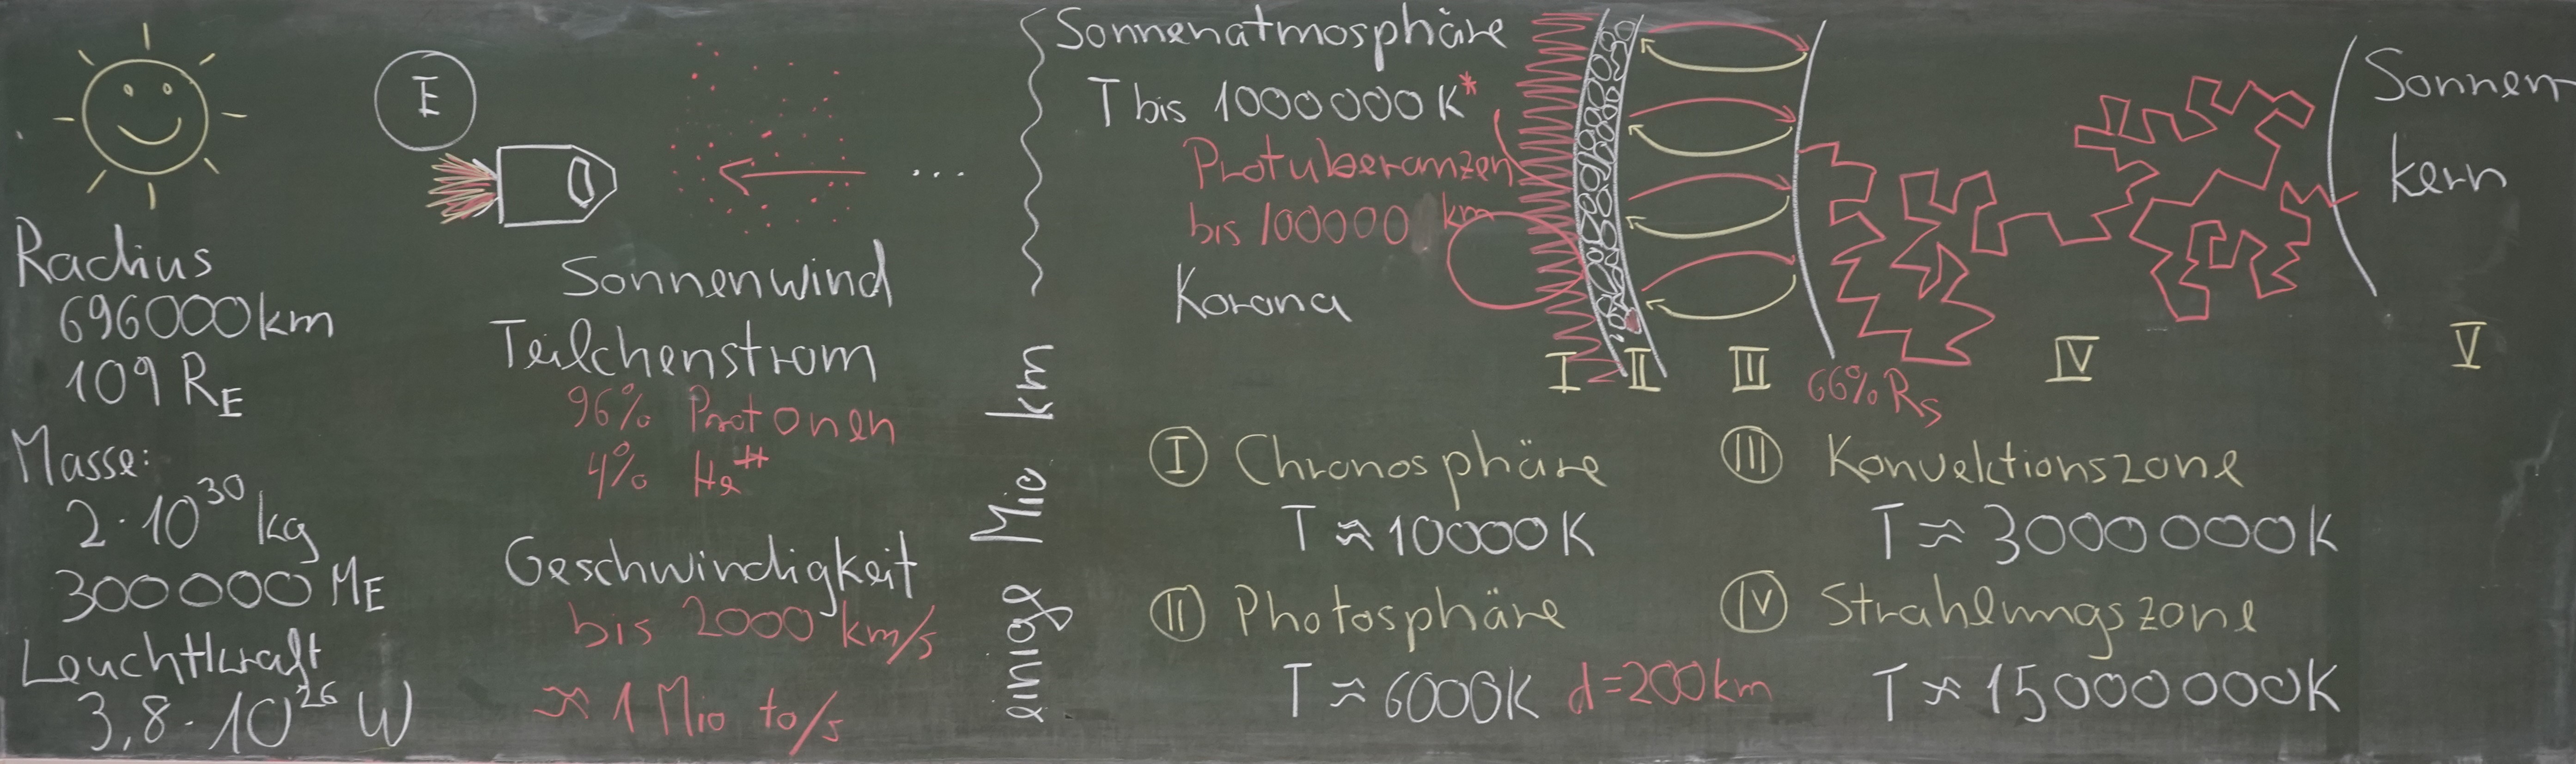 Radius
696000km
109 R_E
Masse:
2·10^30 kg
300000 M_E
Leuchtkraft
3,8·10^26 W
E
...
Sonnenwind
Teilchenstrom
96% Protonen
4% He^++
Geschwindigkeit
bis 2000 km/s
≈ 1 Mio to/s
einige Mio km
Sonnenatmosphäre
T bis 1000000K*
Protuberanzen
bis 100000 km
Korona
I II III IV V
66% R_S
Sonnen-
kern
I Chronosphäre
T ≈ 10000K
II Photosphäre
T ≈ 6000K d=200km
III Konvektionszone
T ≈ 3000000K
IV Strahlungszone
T ≈ 15000000K